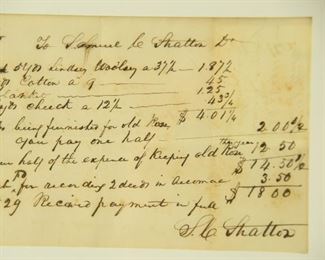 To Samuel C Shatton Dr
5 yds Lindsey Woolsey a 37½ — 1.87½
yds Cotton a 9 — 45
1.25
yds Check a 12½ — 43¾
$ 4.01¼
being furnished for old Rose
you pay one half — 2.00½
half of the expence of Keeping old Rose this year 12.50
$ 14.50½
pd for recording 2 deeds in Accomac 3.50
$ 18.00
29 Received payment in full
S. C Shatton